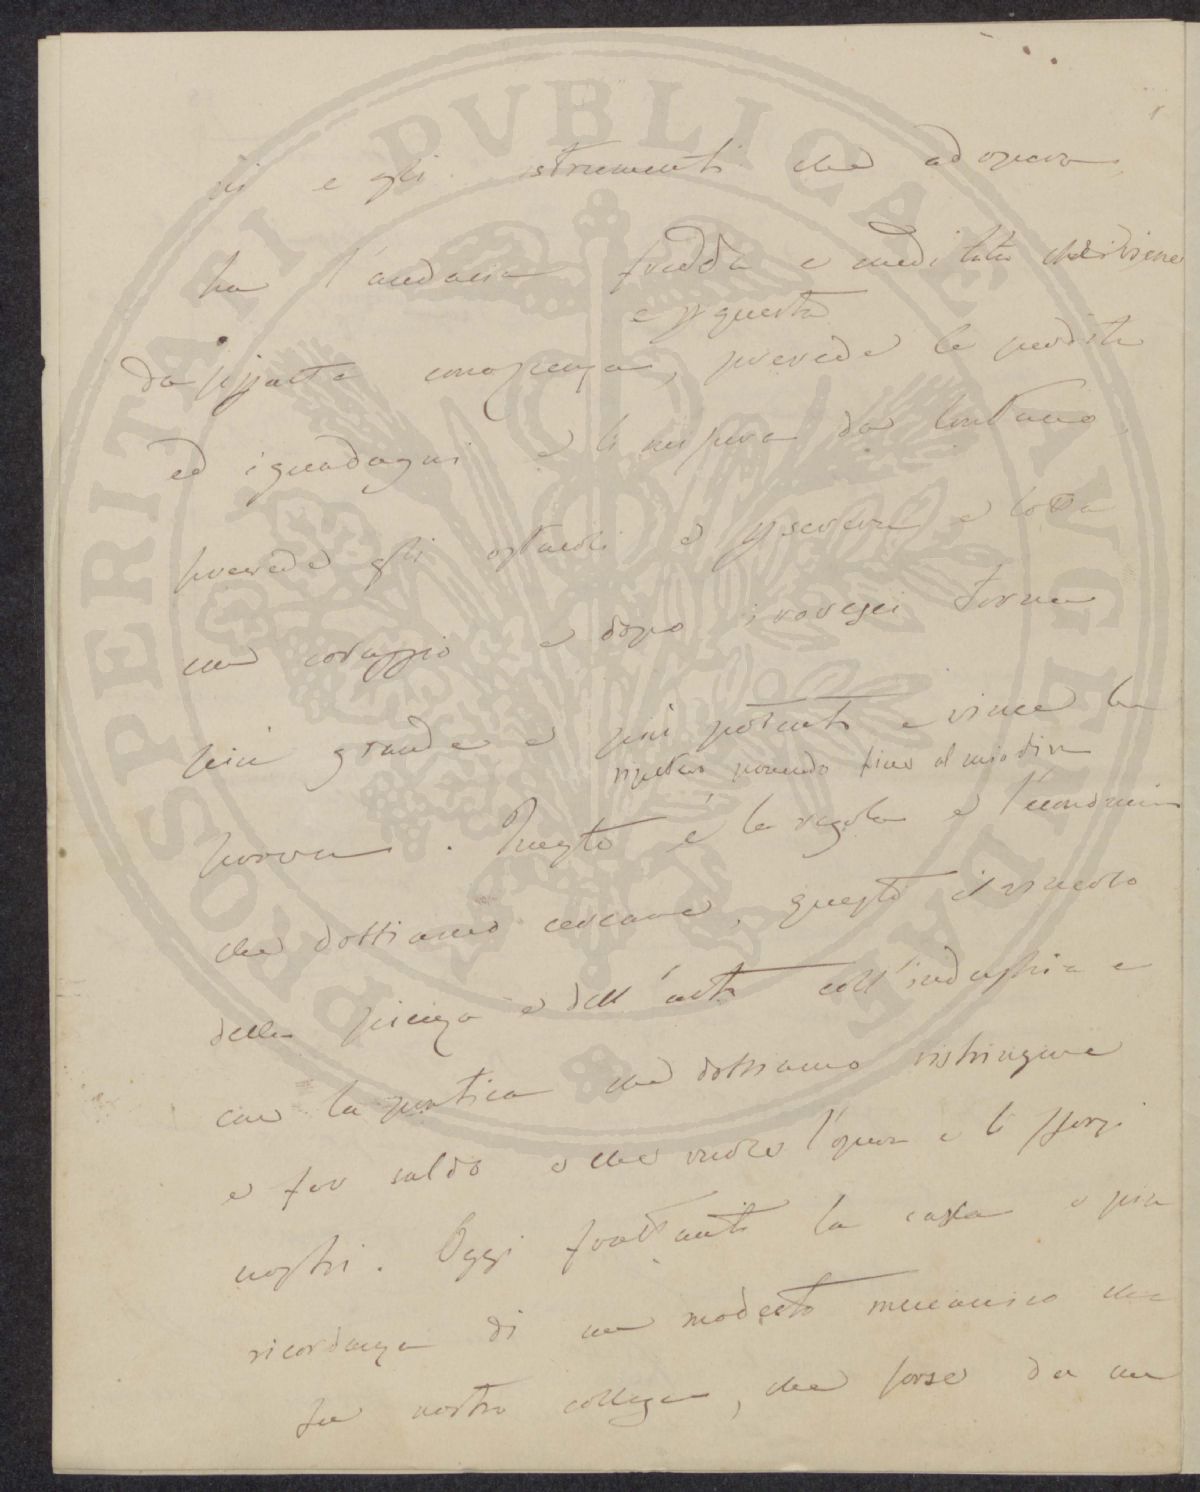 PROSPERITATI PVBLICAE AVGENDAE
ni e gli strumenti che adopera,
ha l'audacia fredda e meditata che viene
e p questa
da esatta conoscenza, prevede le perdite
ed i guadagni e li misura da lontano,
prevede gli ostacoli e persevera e lotta
con coraggio e dopo i rovesci torna
più grande e più potente e vince la
ripetuto movendo fino al mio dire
prova. Questo è la regola e l'economia
che dobbiamo cercare, questo il vincolo
della scienza e dell'arte coll'industria e
con la pratica che dobbiamo ristringere
e far saldo o che vuole l'opera e li sforzi
nostri. Oggi frattanto la casta e pia
ricordanza di un modesto meccanico che
fu nostro collega, che forse da un